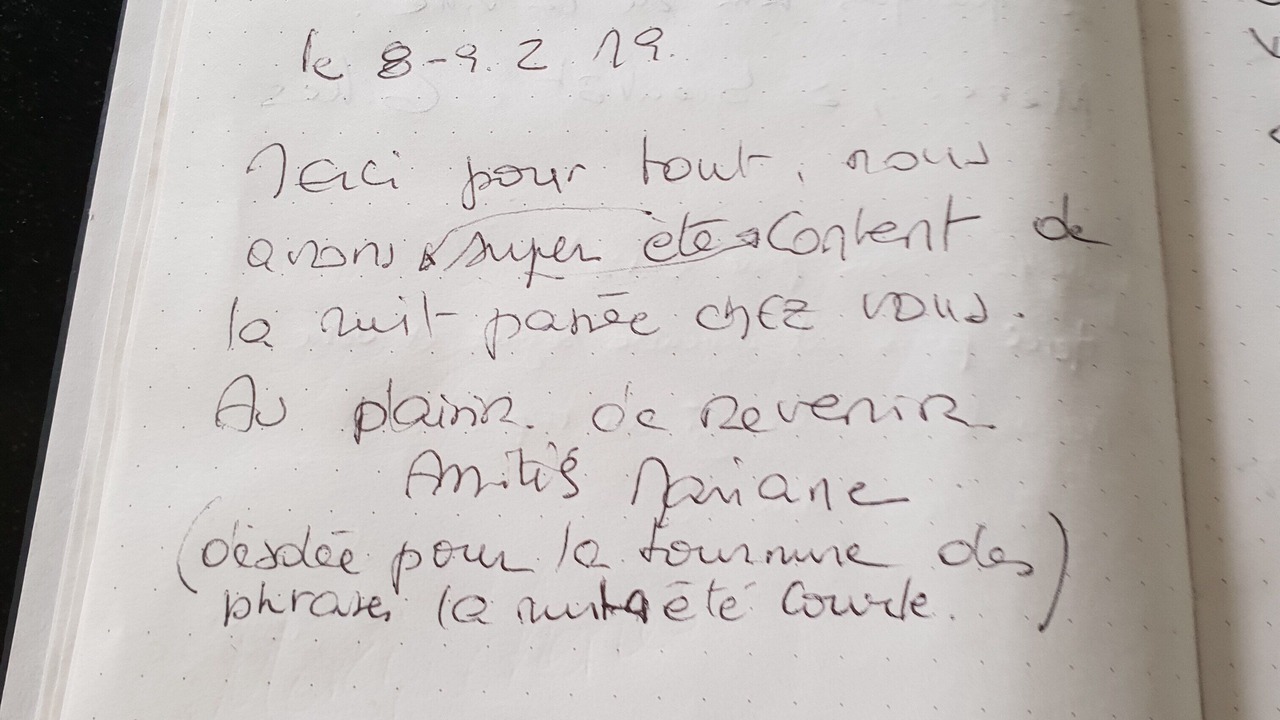 le 8-9. 2 19.
Merci pour tout, nous
avons super été content de
la nuit passée chez vous.
Au plaisir de revenir
Amitiés Mariane
(désolée pour la tournure des
phrases, la nuit a été courte.)